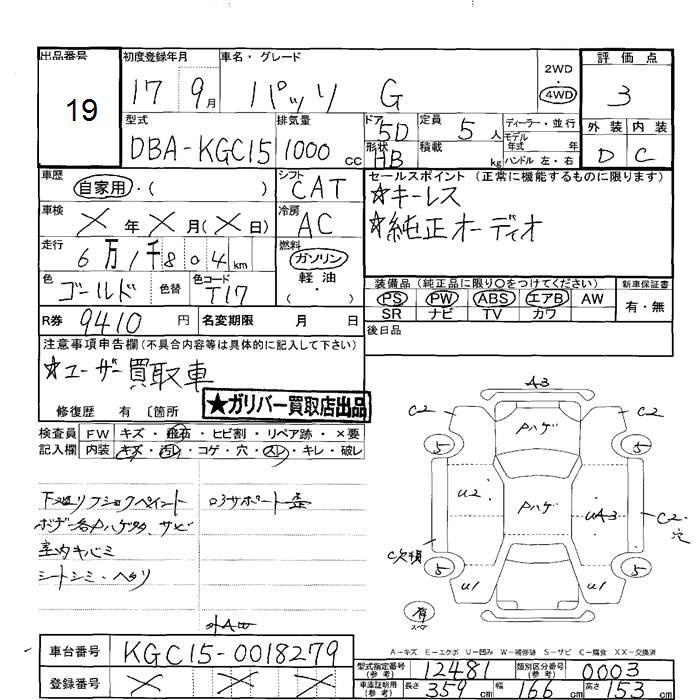 出品番号
19
初度登録年月
17 9月
車名・グレード
パッソ G
2WD
4WD
評価点
3
型式
DBA-KGC15
排気量
1000 cc
ドア
5D
形状
HB
定員
5人
積載
kg
ディーラー・並行
モデル
年式 年
ハンドル 左・右
外装 内装
D C
車歴
自家用・( )
シフト
CAT
セールスポイント (正常に機能するものに限ります)
☆キーレス
☆純正オーディオ
車検
X年X月(X日)
冷房
AC
走行
6万1千804km
燃料
ガソリン
軽油
( ・ )
色
ゴールド
色替
色コード
T17
装備品 (純正品に限り○をつけてください)
PS PW ABS エアB AW
SR ナビ TV カワ
新車保証書
有・無
R券
9410円
名変期限 月 日
後日品
注意事項申告欄(不具合内容等は具体的に記入して下さい)
☆ユーザー買取車
★ガリバー買取店出品
修復歴 有 〔箇所
検査員
記入欄
FW キズ・飛石・ヒビ割・リペア跡・×要
内装 キズ・汚レ・コゲ・穴・スレ・キレ・破レ
室内キバミ
シートシミ・ヘタリ
外AW
A3
C2 C2
Pハゲ
5 5
U2
Pハゲ
UA3
C2・穴
C欠損
5 5
U1 U1
有
スペア
A-キズ E-エクボ U-凹み W-補修跡 S-サビ C-腐食 XX-交換済
車台番号
KGC15-0018279
登録番号
X X X
型式指定番号
(参考)
12481
類別区分番号
(参考)
0003
車庫証明用
(参考)
長さ 359cm 幅 166cm 高さ 153cm